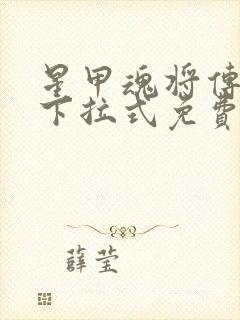 星甲魂将傳
下拉式免費
薛莹